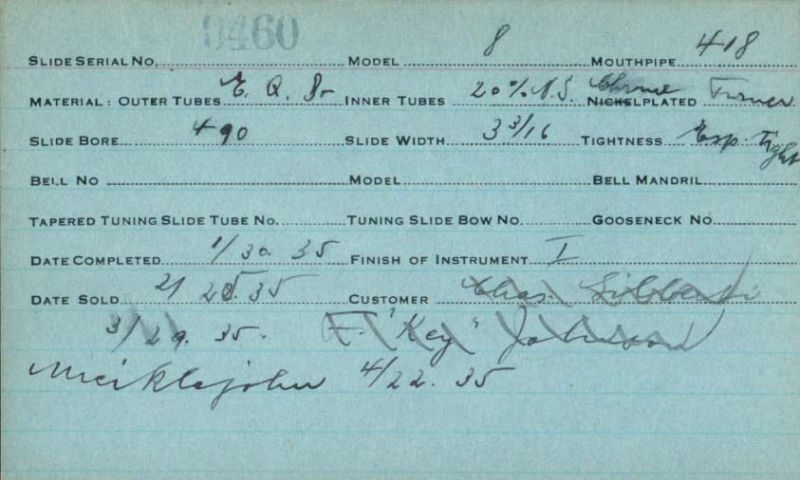 9460
SLIDE SERIAL NO. MODEL 8 MOUTHPIPE 418
MATERIAL: OUTER TUBES E. Q. Br INNER TUBES 20% N.S. Chrome NICKELPLATED Turner
SLIDE BORE 490 SLIDE WIDTH 3 3/16 TIGHTNESS Esp. Tight
BELL NO MODEL BELL MANDRIL
TAPERED TUNING SLIDE TUBE NO. TUNING SLIDE BOW NO. GOOSENECK NO.
DATE COMPLETED 1/30. 35 FINISH OF INSTRUMENT I
DATE SOLD 2/25.35 CUSTOMER Chas.
3/29.35. F. "Key" Johnson
Meiklejohn 4/22.35